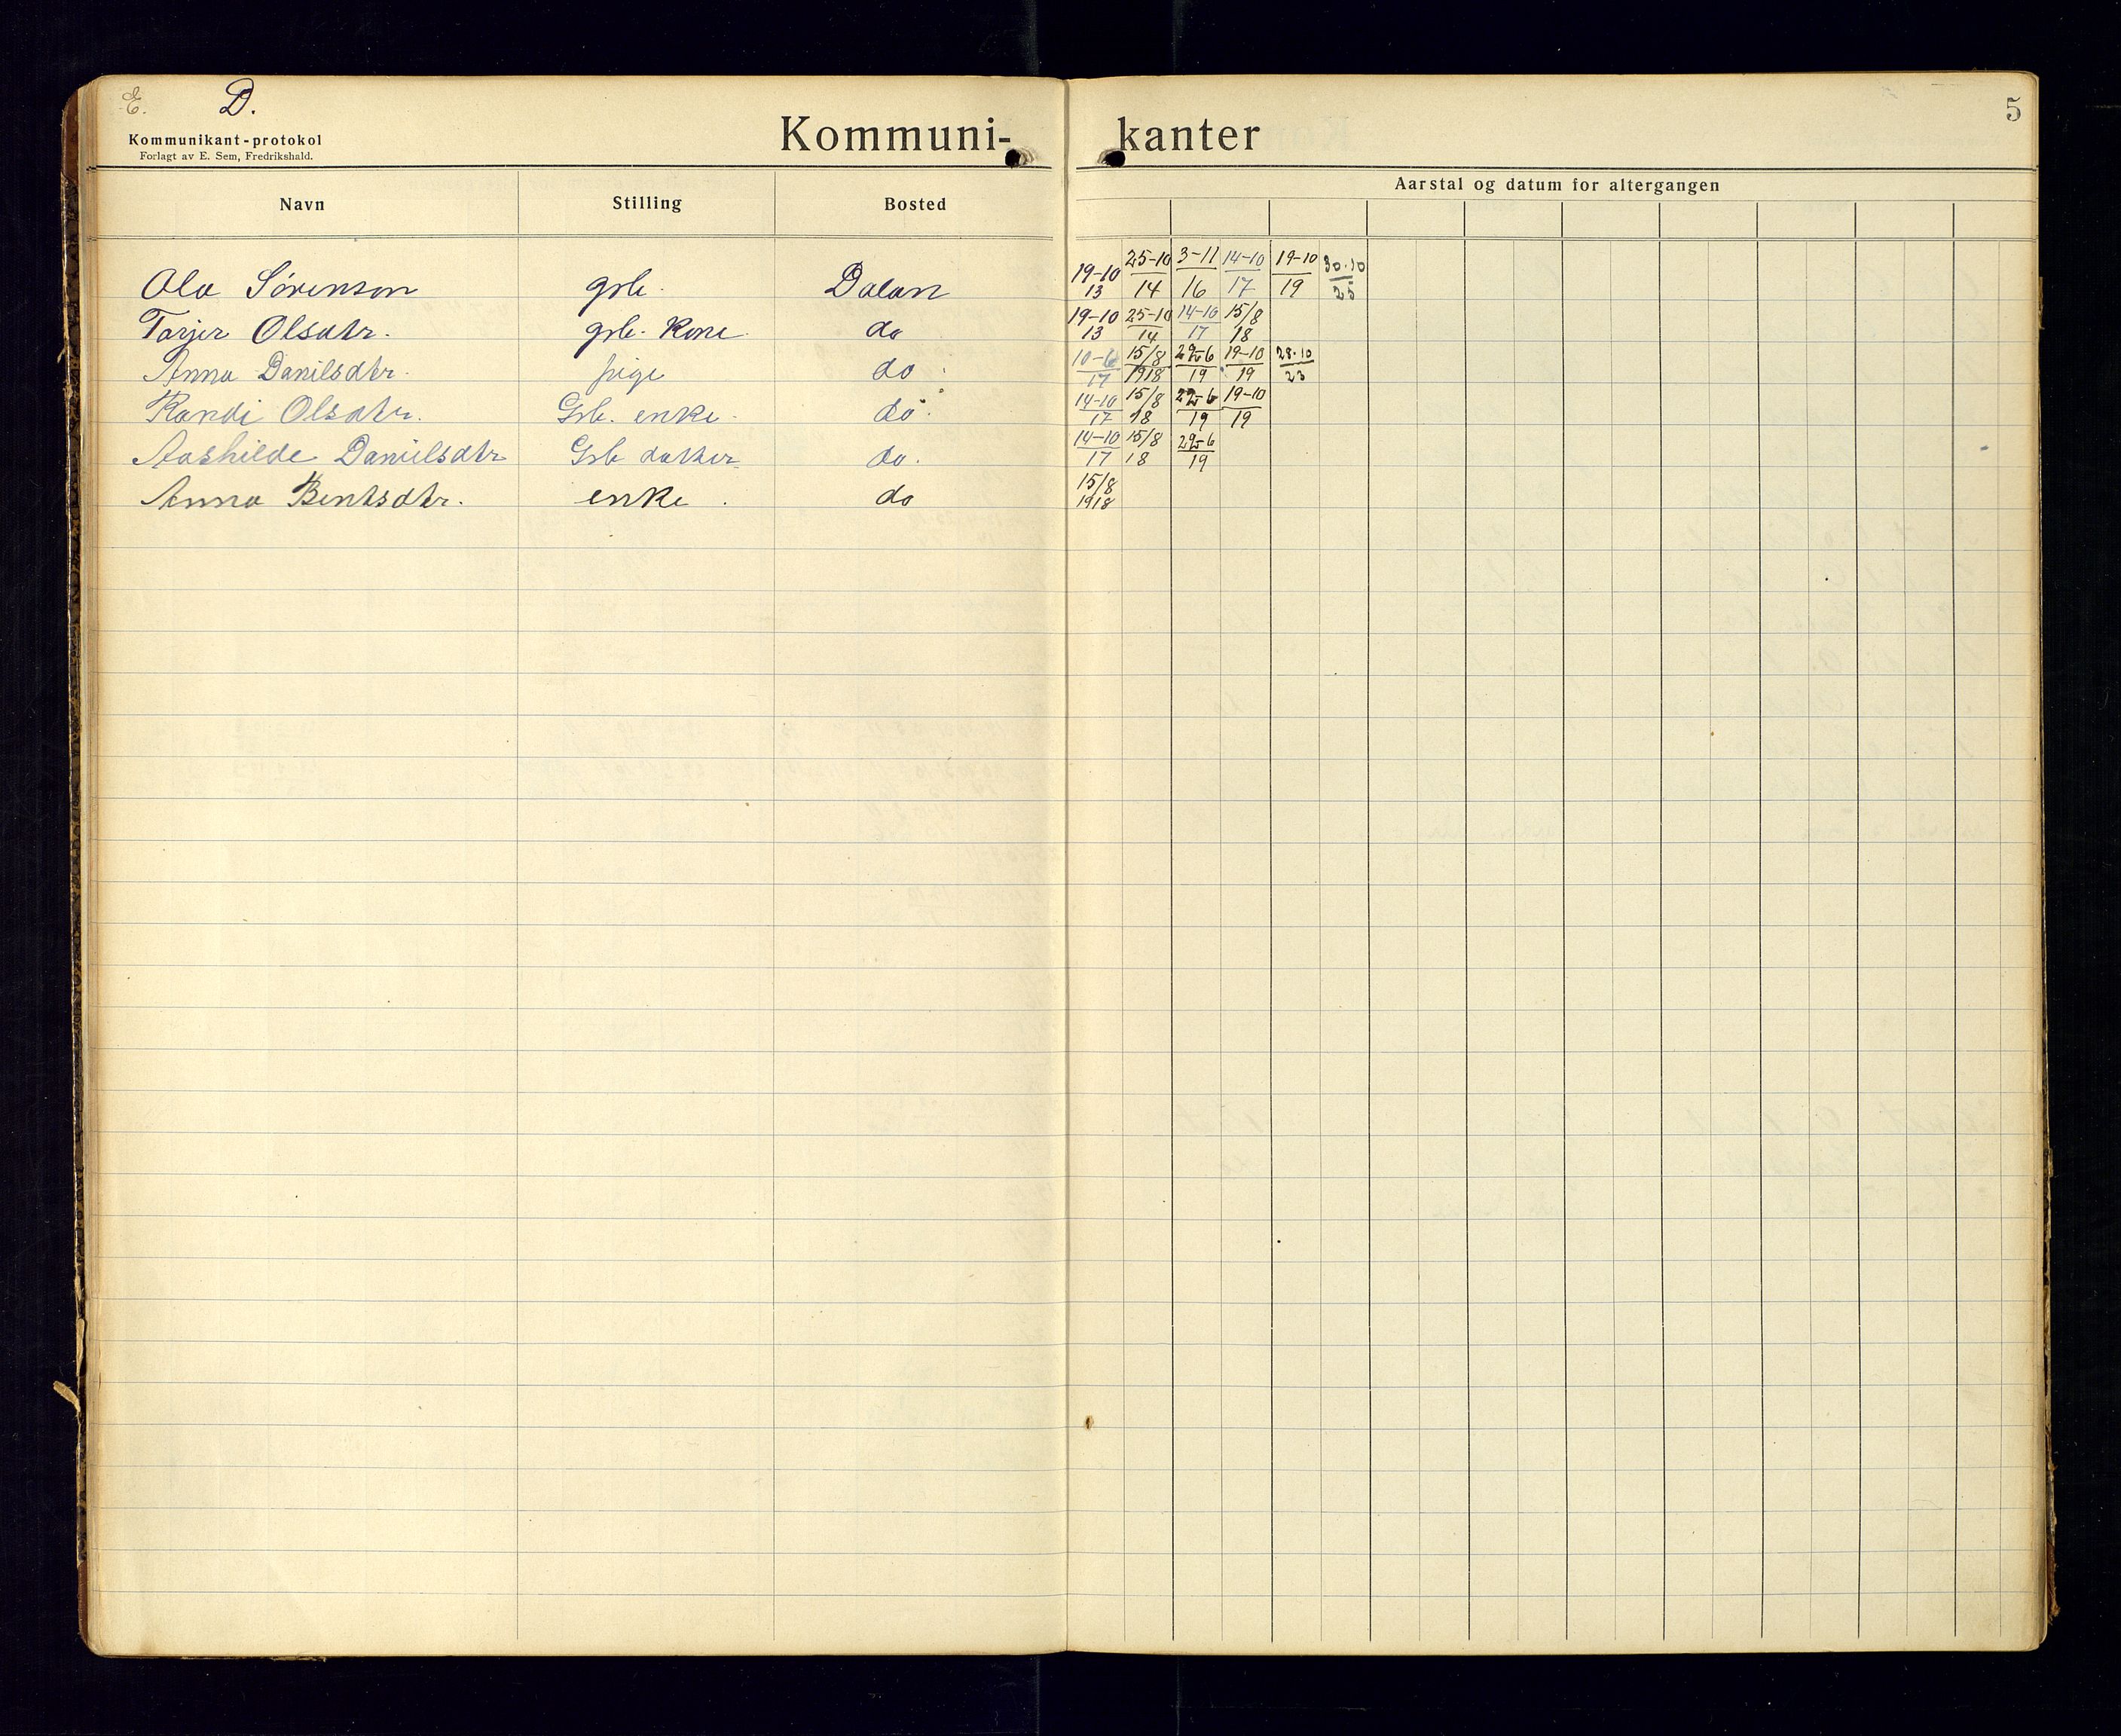 E. D.
Kommunikant-protokol
Forlagt av E. Sem, Fredrikshald.
Kommuni- kanter
5
Navn Stilling Bosted Aarstal og datum for altergangen
Ola Sørenson grb. Dalan 19-10/13 25-10/14 3-11/16 14-10/17 19-10/19 30.10/25
Tarjer Olsdtr. grb. kone do 19-10/13 25-10/14 14-10/17 15/8 18
Anna Danilsdtr. pige do 10-6/17 15/8 1918 29-6/19 19-10/19 28.10/23
Randi Olsdtr. Grb. enke do. 14-10/17 15/8 18 29-6/19 19-10/19
Aashilde Danielsdtr Grb datter do. 14-10/17 15/8 18 29-6/19
Anna Bentsdtr. enke do 15/8 1918